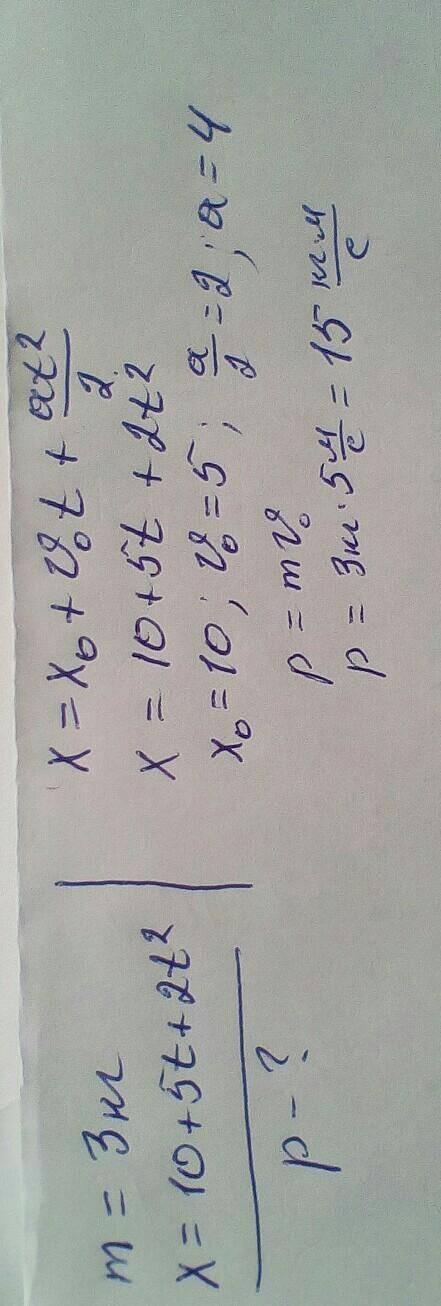 m = 3 кг
x = 10 + 5t + 2t²
p - ?
x = x₀ + v₀t + at²/2
x = 10 + 5t + 2t²
x₀ = 10 ; v₀ = 5 ; a/2 = 2 ; a = 4
p = mv₀
p = 3 кг · 5 м/с = 15 кг·м/с